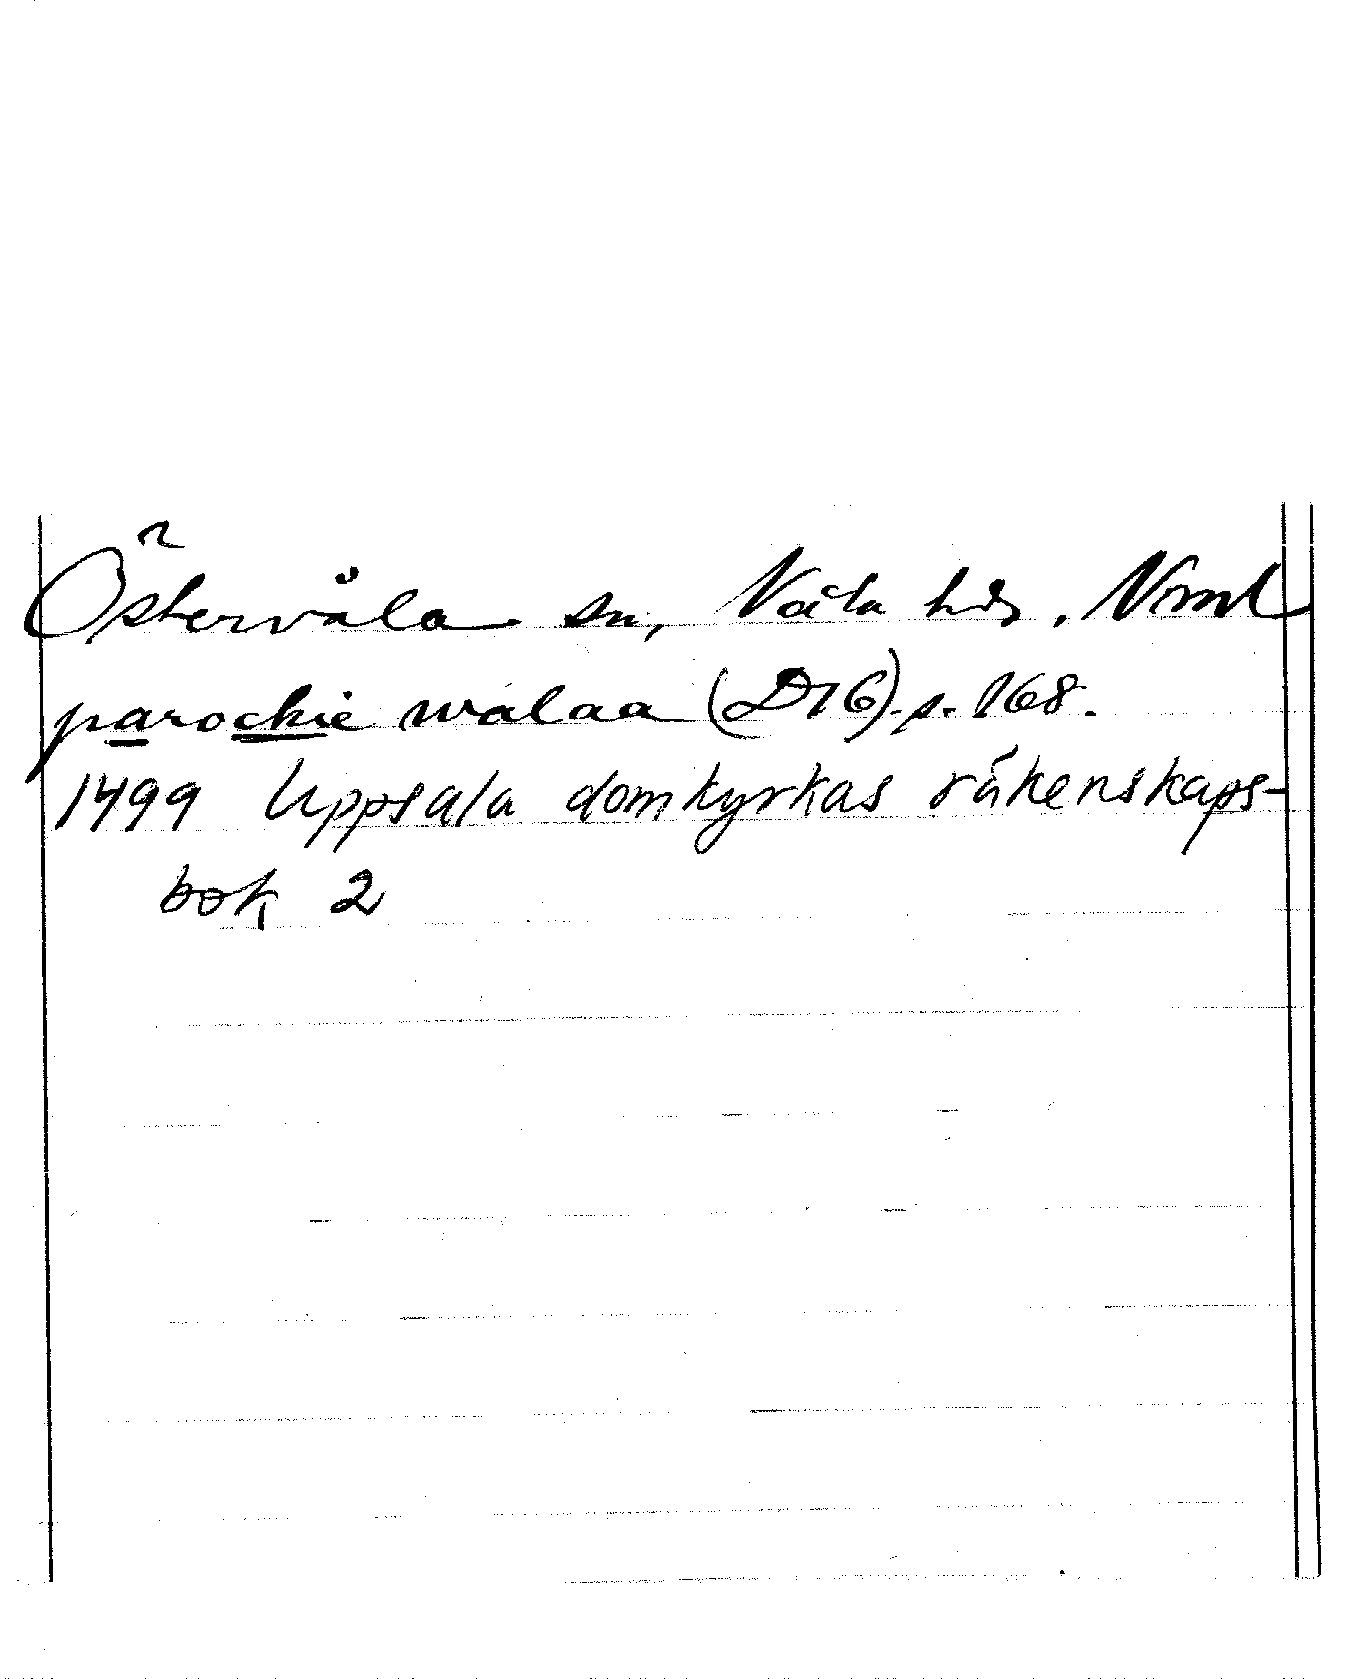 Östervåla sn, Våla hd, Vsml
parockie walaa (D16). s. 168.
1499 Uppsala domkyrkas räkenskaps-
bok 2